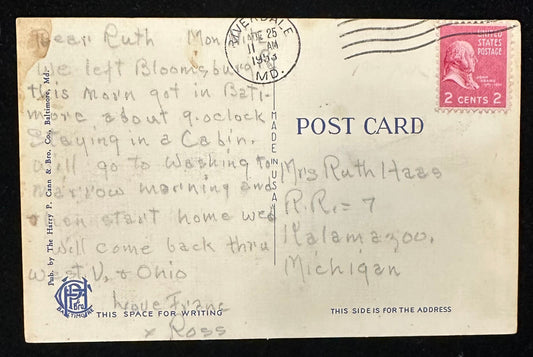 Dear Ruth Mon
We left Bloomsburg
this morn got in Balti-
more about 9. oclock
Staying in a Cabin.
will go to Washing to
marrow morning and
then start home Wed
will come back thru
West V. & Ohio
Love Franc
x Ross
RIVERDALE
25
11 AM
1953
MD.
UNITED
STATES
POSTAGE
JOHN
ADAMS
2 CENTS 2
POST CARD
MADE IN U.S.A.
Mrs Ruth Haas
R.R. = 7
Kalamazoo,
Michigan
Pub. by The Harry P. Cann & Bro. Co., Baltimore, Md.
Bro
BALTIMORE
THIS SPACE FOR WRITING
THIS SIDE IS FOR THE ADDRESS